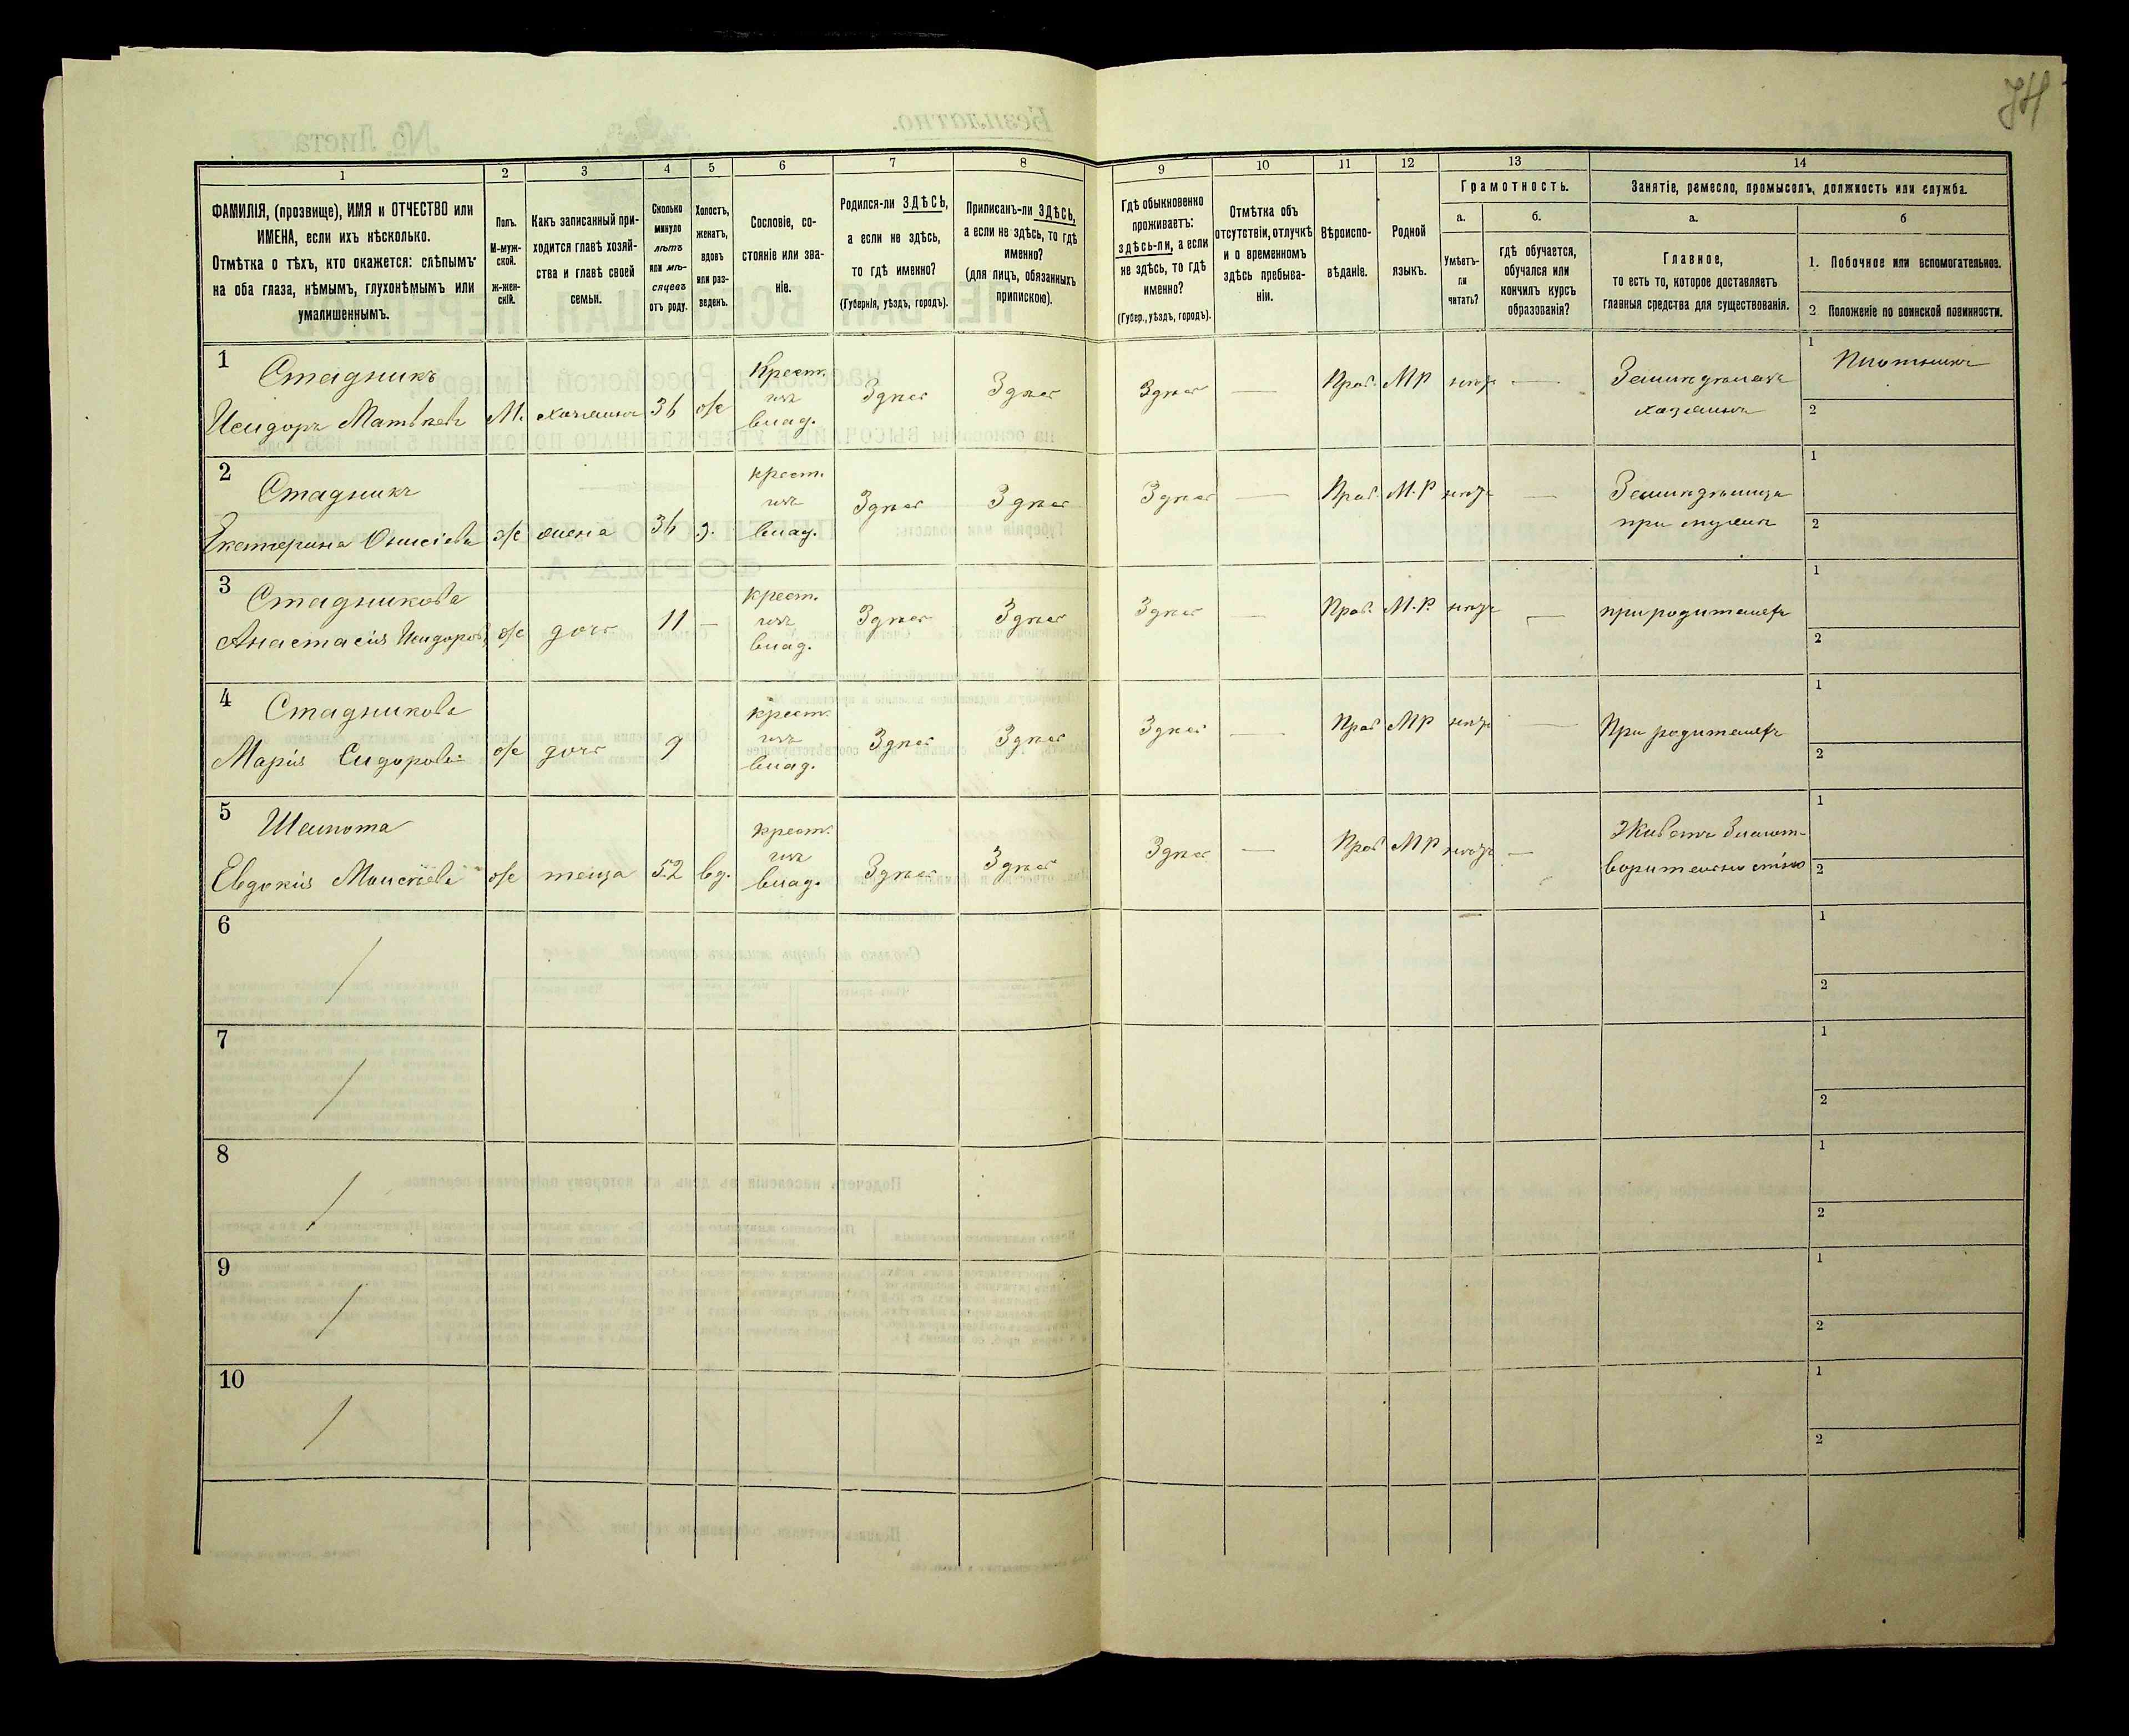 1 2 3 4 5 6 7 8 9 10 11 12 13 14
ФАМИЛІЯ, (прозвище), ИМЯ и ОТЧЕСТВО или
ИМЕНА, если ихъ нѣсколько.
Отмѣтка о тѣхъ, кто окажется: слѣпымъ
на оба глаза, нѣмымъ, глухонѣмымъ или
умалишеннымъ.
Полъ.
М-муж-
ской.
ж-жен-
скій.
Какъ записанный при-
ходится главѣ хозяй-
ства и главѣ своей
семьи.
Сколько
минуло
лѣтъ
или мѣ-
сяцевъ
отъ роду.
Холостъ,
женатъ,
вдовъ
или раз-
веденъ.
Сословіе, со-
стояніе или зва-
ніе.
Родился-ли ЗДѢСЬ,
а если не здѣсь,
то гдѣ именно?
(Губернія, уѣздъ, городъ).
Приписанъ-ли ЗДѢСЬ,
а если не здѣсь, то гдѣ
именно?
(для лицъ, обязанныхъ
припискою).
Гдѣ обыкновенно
проживаетъ:
здѣсь-ли, а если
не здѣсь, то гдѣ
именно?
(Губер., уѣздъ, городъ).
Отмѣтка объ
отсутствіи, отлучкѣ
и о временномъ
здѣсь пребыва-
ніи.
Вѣроиспо-
вѣданіе.
Родной
языкъ.
Грамотность.
а.
Умѣетъ-
ли
читать?
б.
гдѣ обучается,
обучался или
кончилъ курсъ
образованія?
Занятіе, ремесло, промыселъ, должность или служба.
а.
Главное,
то есть то, которое доставляетъ
главныя средства для существованія.
б
1. Побочное или вспомогательное.
2 Положеніе по воинской повинности.
1 Стадникъ
Исидоръ Матвѣевъ М. хозяинъ 36 ж Крест. изъ влад. Здѣсь Здѣсь Здѣсь — Прав. МР нѣтъ — Земледѣлецъ хозяинъ 1 Плотникъ 2
2 Стадникъ
Екатерина Онисіева ж жена 36 з. крест. изъ влад. Здѣсь Здѣсь Здѣсь — Прав. М.Р нѣтъ — при мужѣ 1 2
3 Стадникова
Анастасія Исидоров ж дочь 11 — крест. изъ влад. Здѣсь Здѣсь Здѣсь — Прав. М.Р. нѣтъ — при родителѣхъ 1 2
4 Стадникова
Марія Сидорова ж дочь 9 крест. изъ влад. Здѣсь Здѣсь Здѣсь — Прав МР нѣтъ — При родителѣхъ 1 2
5
Евдокія Моисѣева ж теща 52 вд. крест. изъ влад. Здѣсь Здѣсь Здѣсь — Прав МР нѣтъ — Живетъ 1 2
6 1 2
7 1 2
8 1 2
9 1 2
10 1 2